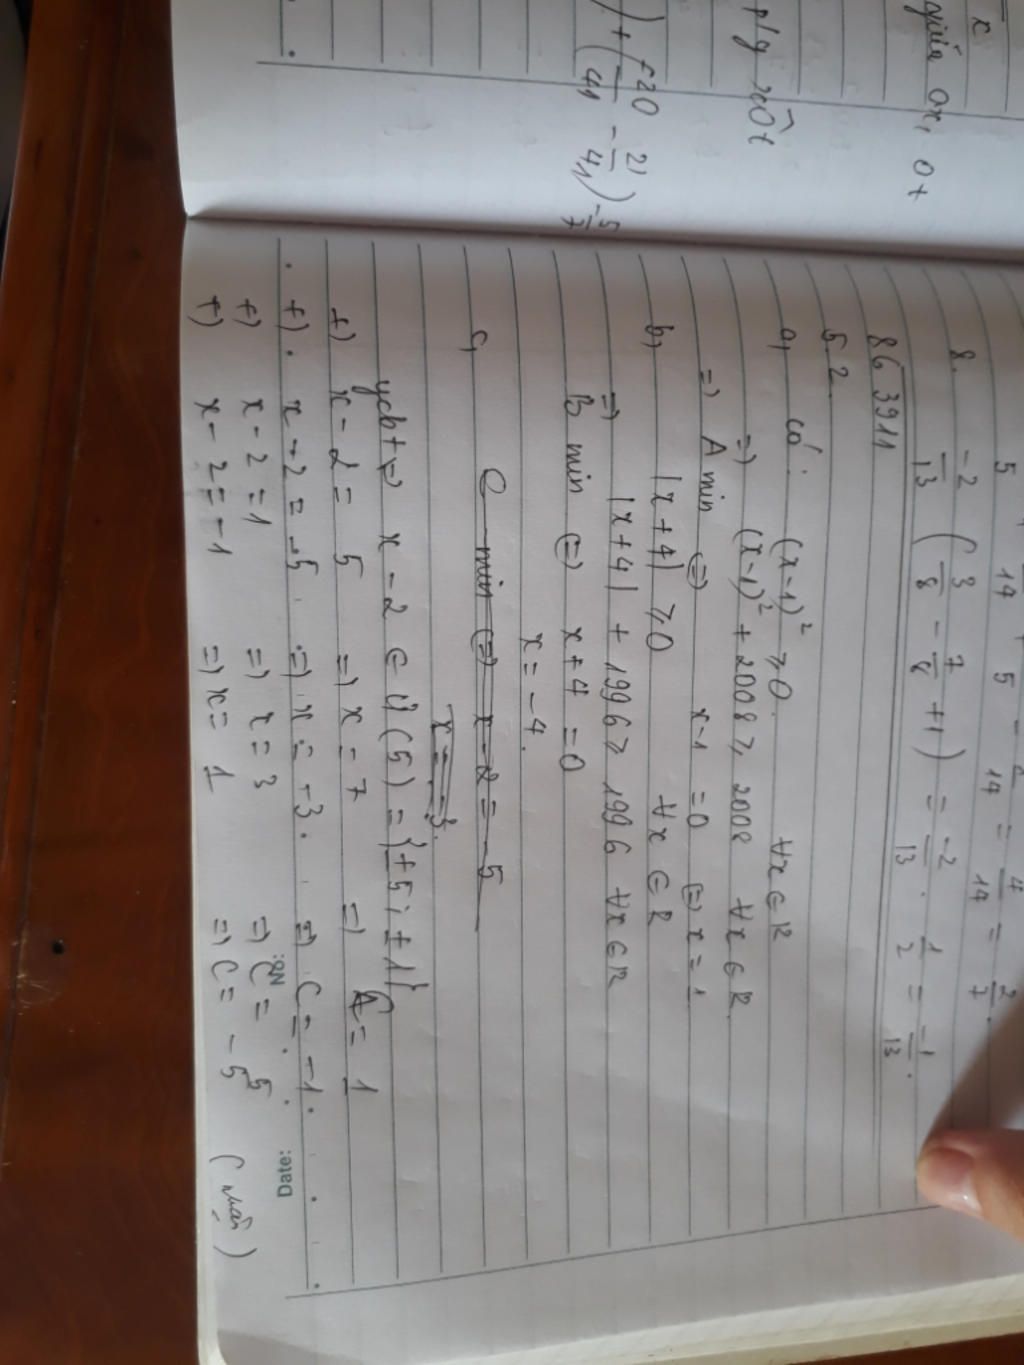 x
giữa Ox, Ot
p/g xOt
) + (-20/41 - 21/41) -5/7
5 14 5 14 = 4/14 = 2/7.
8. -2/13 (3/8 - 7/8 + 1) = -2/13 . 1/2 = -1/13.
863911
5.2.
a, có: (x-1)² ≥ 0. ∀x ∈ R
=) (x-1)² + 2008 ≥ 2008 ∀x ∈ R
=) A min (=) x-1 = 0 (=) x = 1
b, |x+4| ≥ 0 ∀x ∈ R
=) |x+4| + 1996 ≥ 1996 ∀x ∈ R
B min (=) x+4 = 0
x = -4.
c, C min (=) x-2 = -5
x = -3.
ycbt (=) x-2 ∈ Ư(5) = {±5; ±1}
+) x-2 = 5 =) x = 7 =) C = 1
+) x-2 = -5 =) x = -3. =) C = -1.
+) x-2 = 1 =) x = 3 =) C = 5
+) x-2 = -1 =) x = 1 =) C = -5 (nhận)
No:
Date: